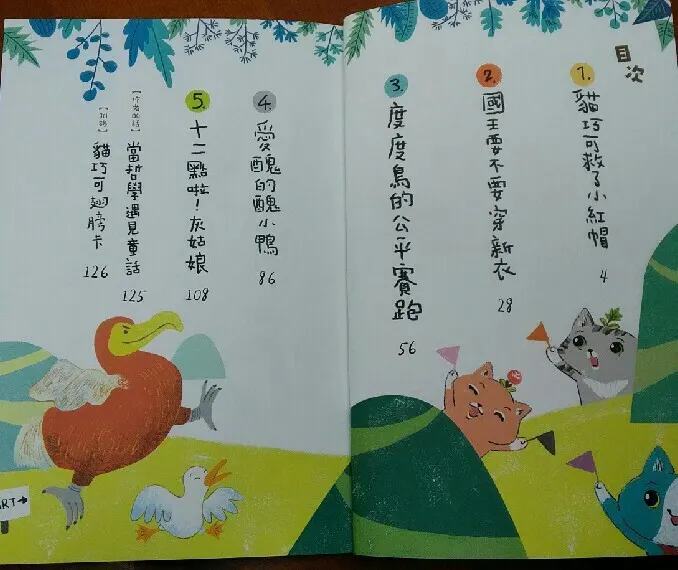 目次
1. 貓巧可救了小紅帽
4
2. 國王要不要穿新衣
28
3. 度度鳥的公平賽跑
56
4. 愛醜的醜小鴨
86
5. 十二點啦!灰姑娘
108
【作者的話】當哲學遇見童話
125
【附錄】貓巧可翅膀卡
126
ART→